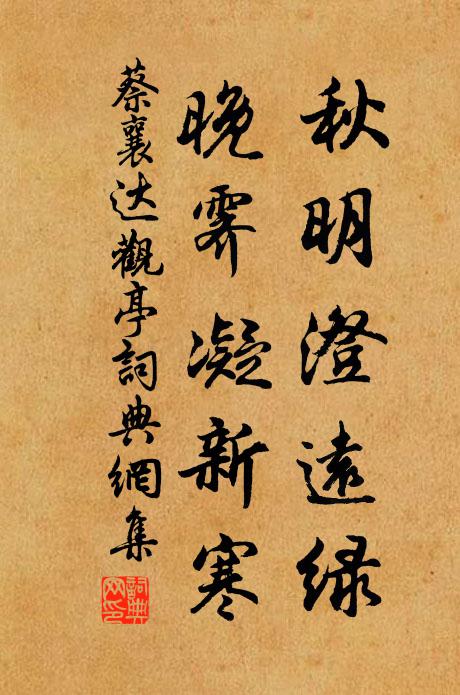 秋明澄遠緑
晚霽凝新寒
蔡襄达觀亭詞典網集
詞典网印